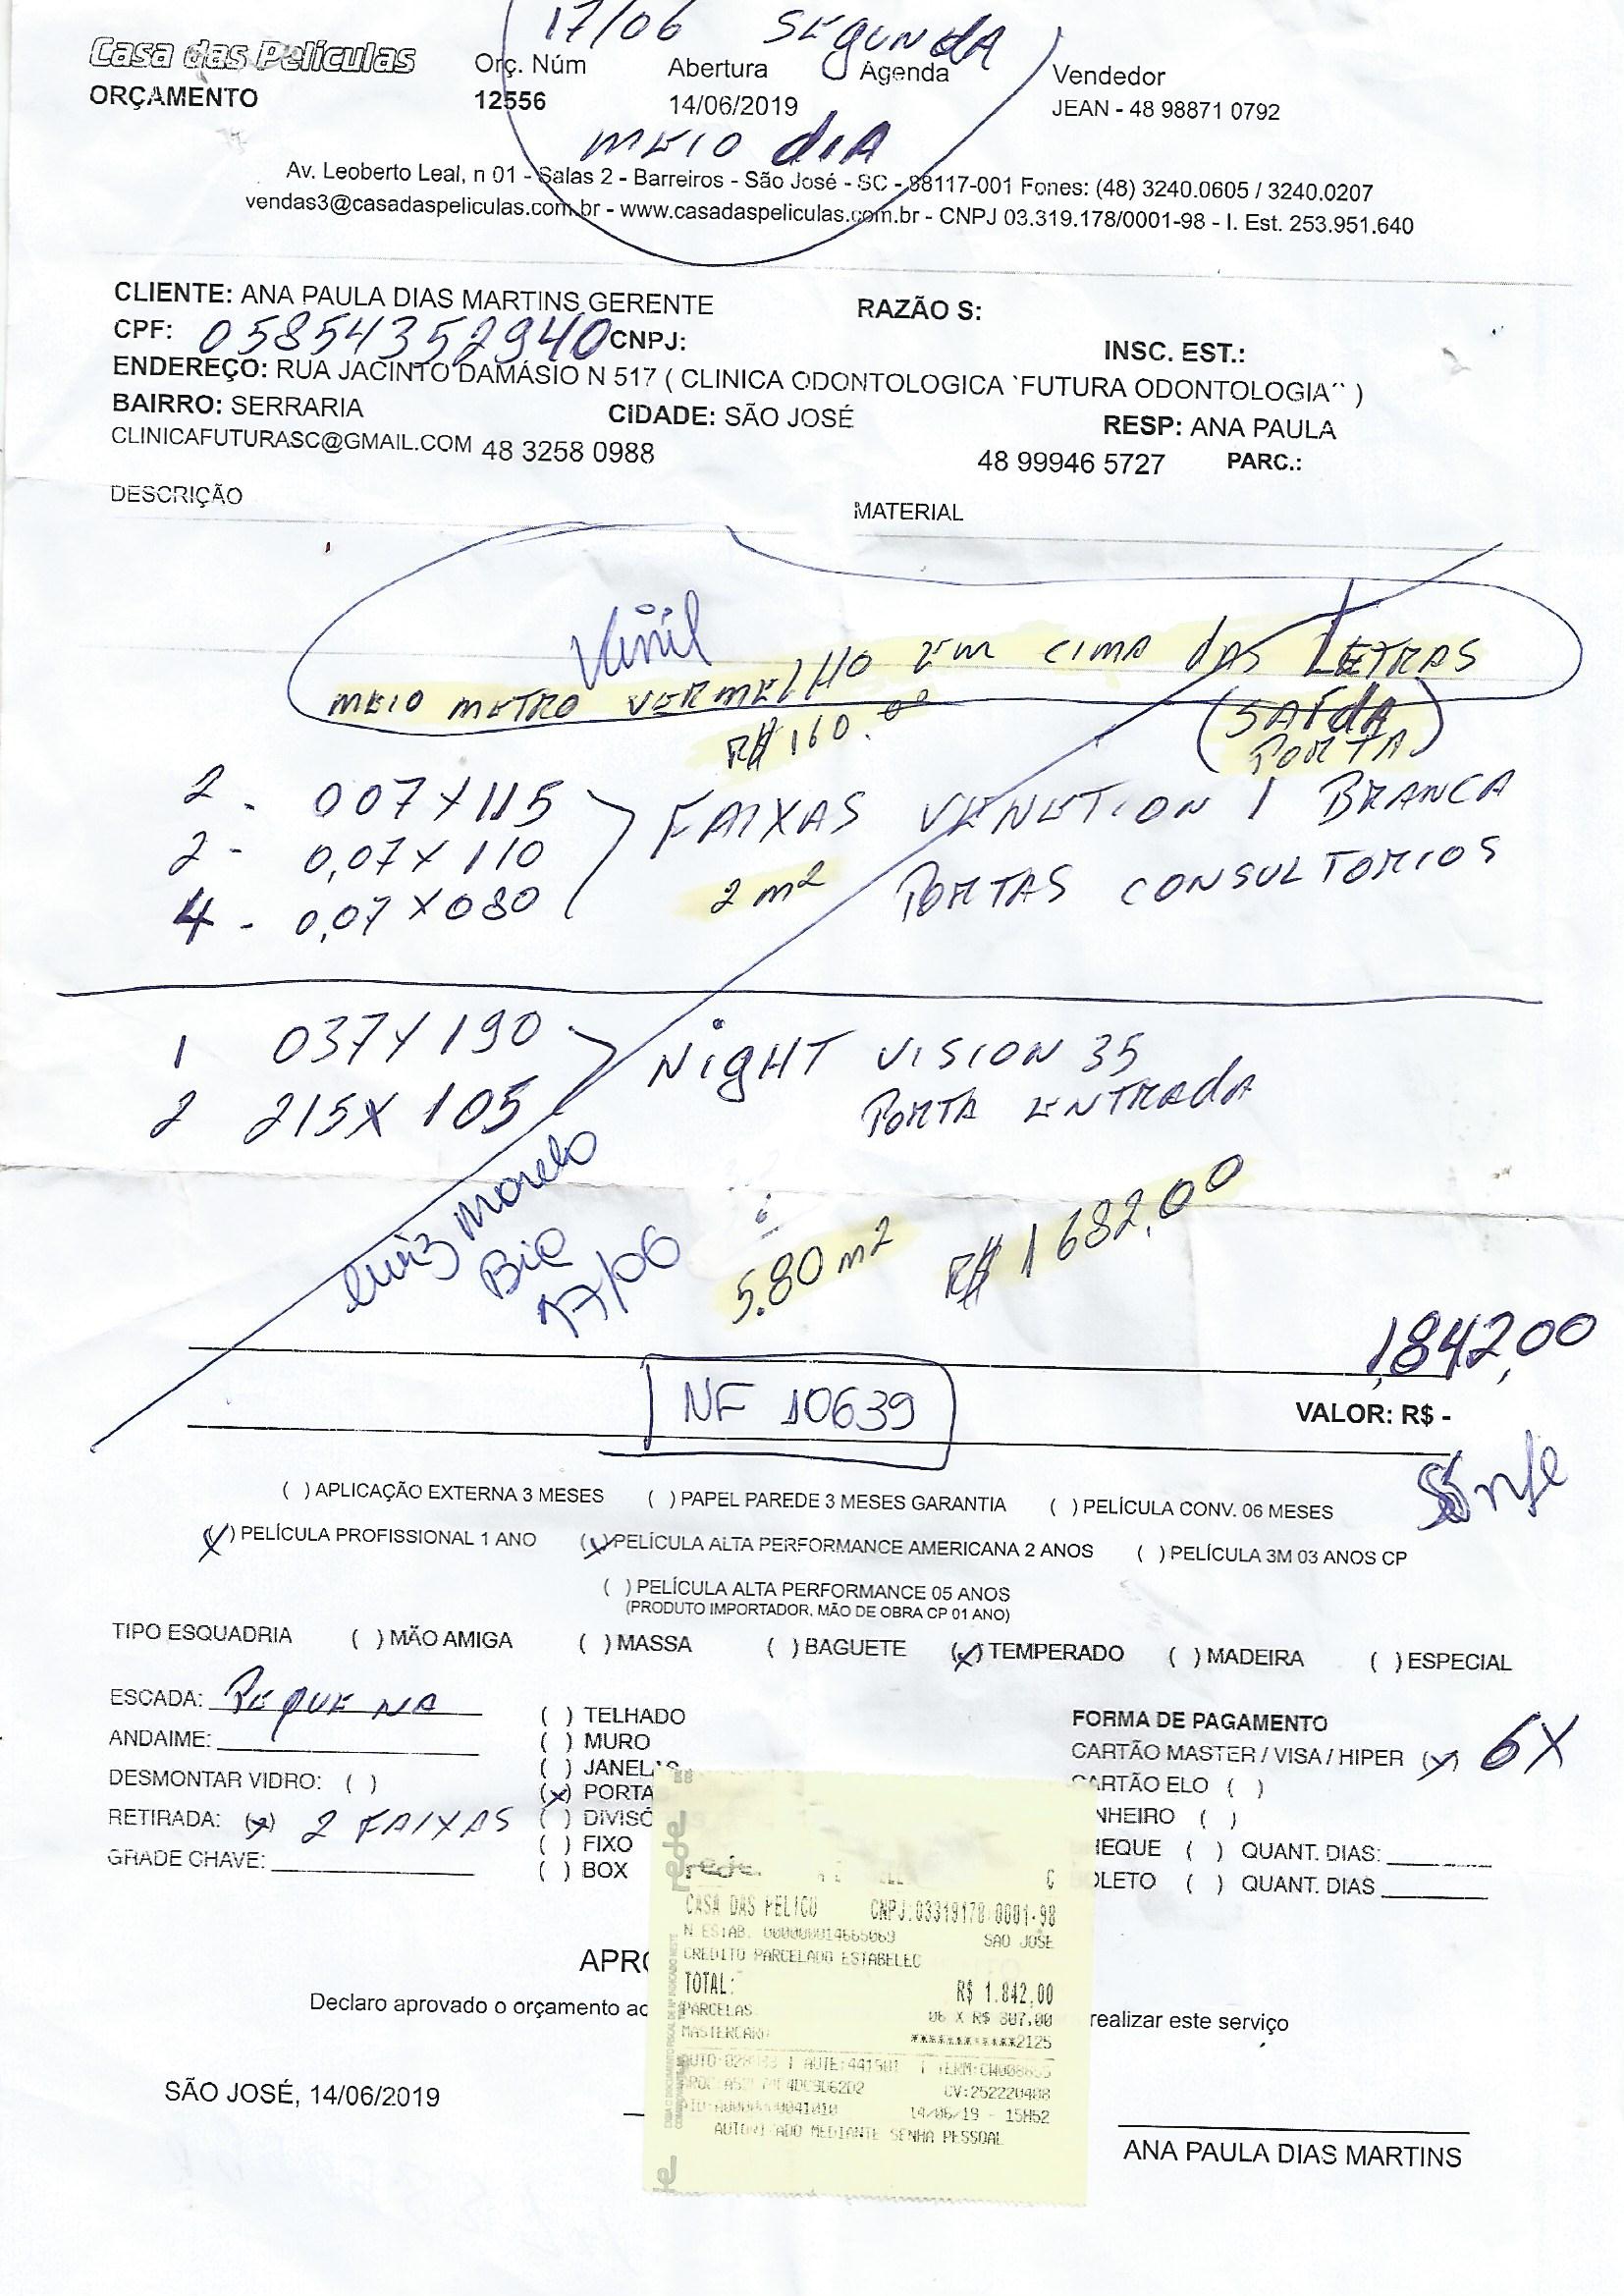 17/06 SEGUNDA
Casa das Películas
Orç. Núm Abertura Agenda Vendedor
ORÇAMENTO 12556 14/06/2019 JEAN - 48 98871 0792
MEIO DIA
Av. Leoberto Leal, n 01 - Salas 2 - Barreiros - São José - SC - 88117-001 Fones: (48) 3240.0605 / 3240.0207
vendas3@casadaspeliculas.com.br - www.casadaspeliculas.com.br - CNPJ 03.319.178/0001-98 - I. Est. 253.951.640
CLIENTE: ANA PAULA DIAS MARTINS GERENTE RAZÃO S:
CPF: 05854352940 CNPJ: INSC. EST.:
ENDEREÇO: RUA JACINTO DAMÁSIO N 517 ( CLINICA ODONTOLOGICA `FUTURA ODONTOLOGIA´´ )
BAIRRO: SERRARIA CIDADE: SÃO JOSÉ RESP: ANA PAULA
CLINICAFUTURASC@GMAIL.COM 48 3258 0988 48 99946 5727 PARC.:
DESCRIÇÃO MATERIAL
Vinil
MEIO METRO VERMELHO EM CIMA DAS LETRAS
R$ 160,00 (SAÍDA PORTA)
2 - 007 X 115 FAIXAS VENETION 1 BRANCA
2 - 0,07 X 110
4 - 0,07 X 080 2 m² PORTAS CONSULTORIOS
1 037 X 190 NIGHT VISION 35
2 215 X 105 PORTA ENTRADA
17/06
5.80 m² R$ 1682,00
1.842,00
NF 10639 VALOR: R$ -
nfe
( ) APLICAÇÃO EXTERNA 3 MESES ( ) PAPEL PAREDE 3 MESES GARANTIA ( ) PELÍCULA CONV. 06 MESES
(X) PELÍCULA PROFISSIONAL 1 ANO (X) PELÍCULA ALTA PERFORMANCE AMERICANA 2 ANOS ( ) PELÍCULA 3M 03 ANOS CP
( ) PELÍCULA ALTA PERFORMANCE 05 ANOS
(PRODUTO IMPORTADOR, MÃO DE OBRA CP 01 ANO)
TIPO ESQUADRIA ( ) MÃO AMIGA ( ) MASSA ( ) BAGUETE (X) TEMPERADO ( ) MADEIRA ( ) ESPECIAL
ESCADA: PEQUENA
ANDAIME:
DESMONTAR VIDRO: ( )
RETIRADA: (X) 2 FAIXAS
GRADE CHAVE:
( ) TELHADO
( ) MURO
( ) JANELAS
(X) PORTA
( ) DIVISÓ
( ) FIXO
( ) BOX
FORMA DE PAGAMENTO
CARTÃO MASTER / VISA / HIPER (X) 6X
CARTÃO ELO ( )
NHEIRO ( )
HEQUE ( ) QUANT. DIAS:
OLETO ( ) QUANT. DIAS
rede
CASA DAS PELICU CNPJ:03319178/0001-98
N ESTAB. 000000014665069 SAO JOSE
CREDITO PARCELADO ESTABELEC
TOTAL: R$ 1.842,00
PARCELAS 06 X R$ 307,00
MASTERCARD ************2125
CV:252220408
14/06/19 - 15H52
AUTORIZADO MEDIANTE SENHA PESSOAL
APRO
Declaro aprovado o orçamento ac realizar este serviço
SÃO JOSÉ, 14/06/2019
ANA PAULA DIAS MARTINS